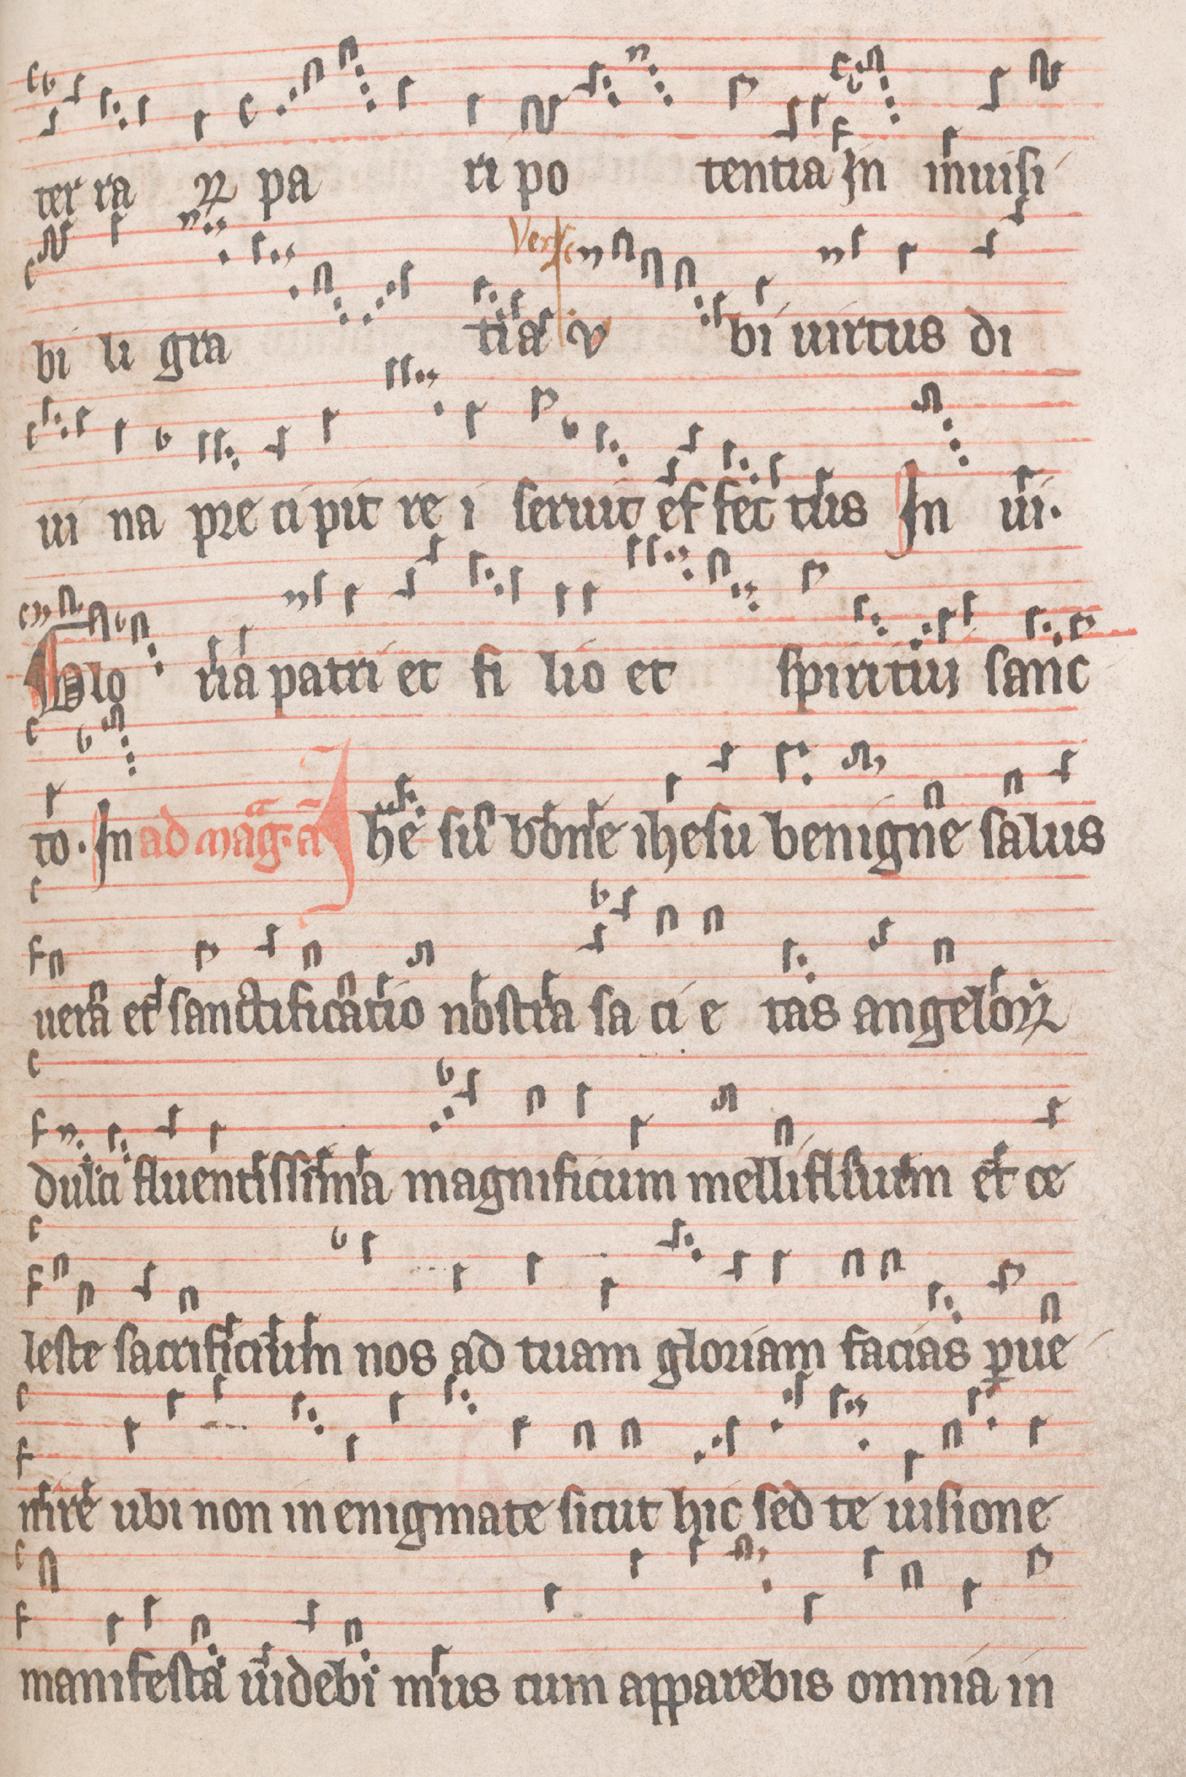 ter ra ꝝ pa ri po tentia In inuisi
Vers
bi li gra tia v bi uirtus di
ui na pre cipit re i seruit ef fec tus In ui.
Glo ria patri et fi lio et spiritui sanc
to. In ad mag. a he su bone ihesu benigne salus
uera et sanctificatio nostra sa ci e tas angeloꝝ
dulci fluentissima magnificum mellifluum et ce
leste sacrificium nos ad tuam gloriam facias ꝑue
nire ubi non in enigmate sicut hic sed te uisione
manifesta uidebimus cum apparebis omnia in